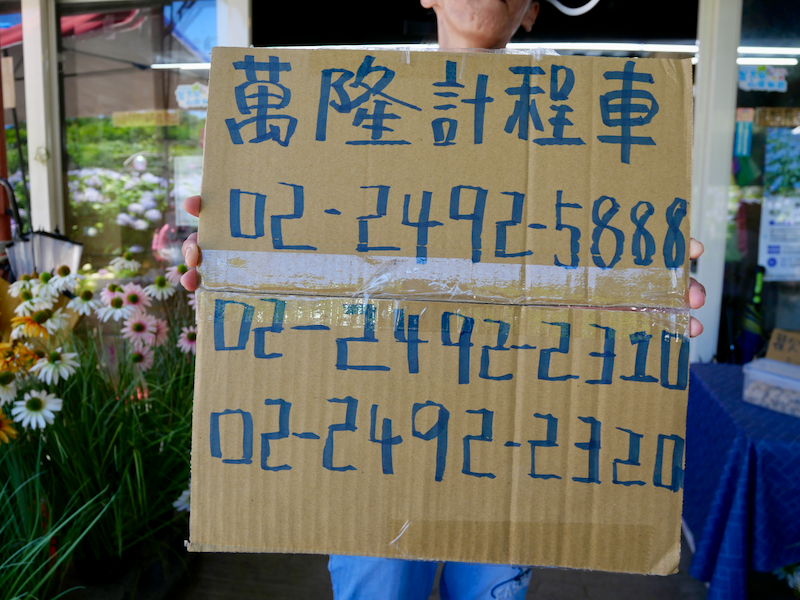 萬隆計程車
02-2492-5888
02-2492-2310
02-2492-2320